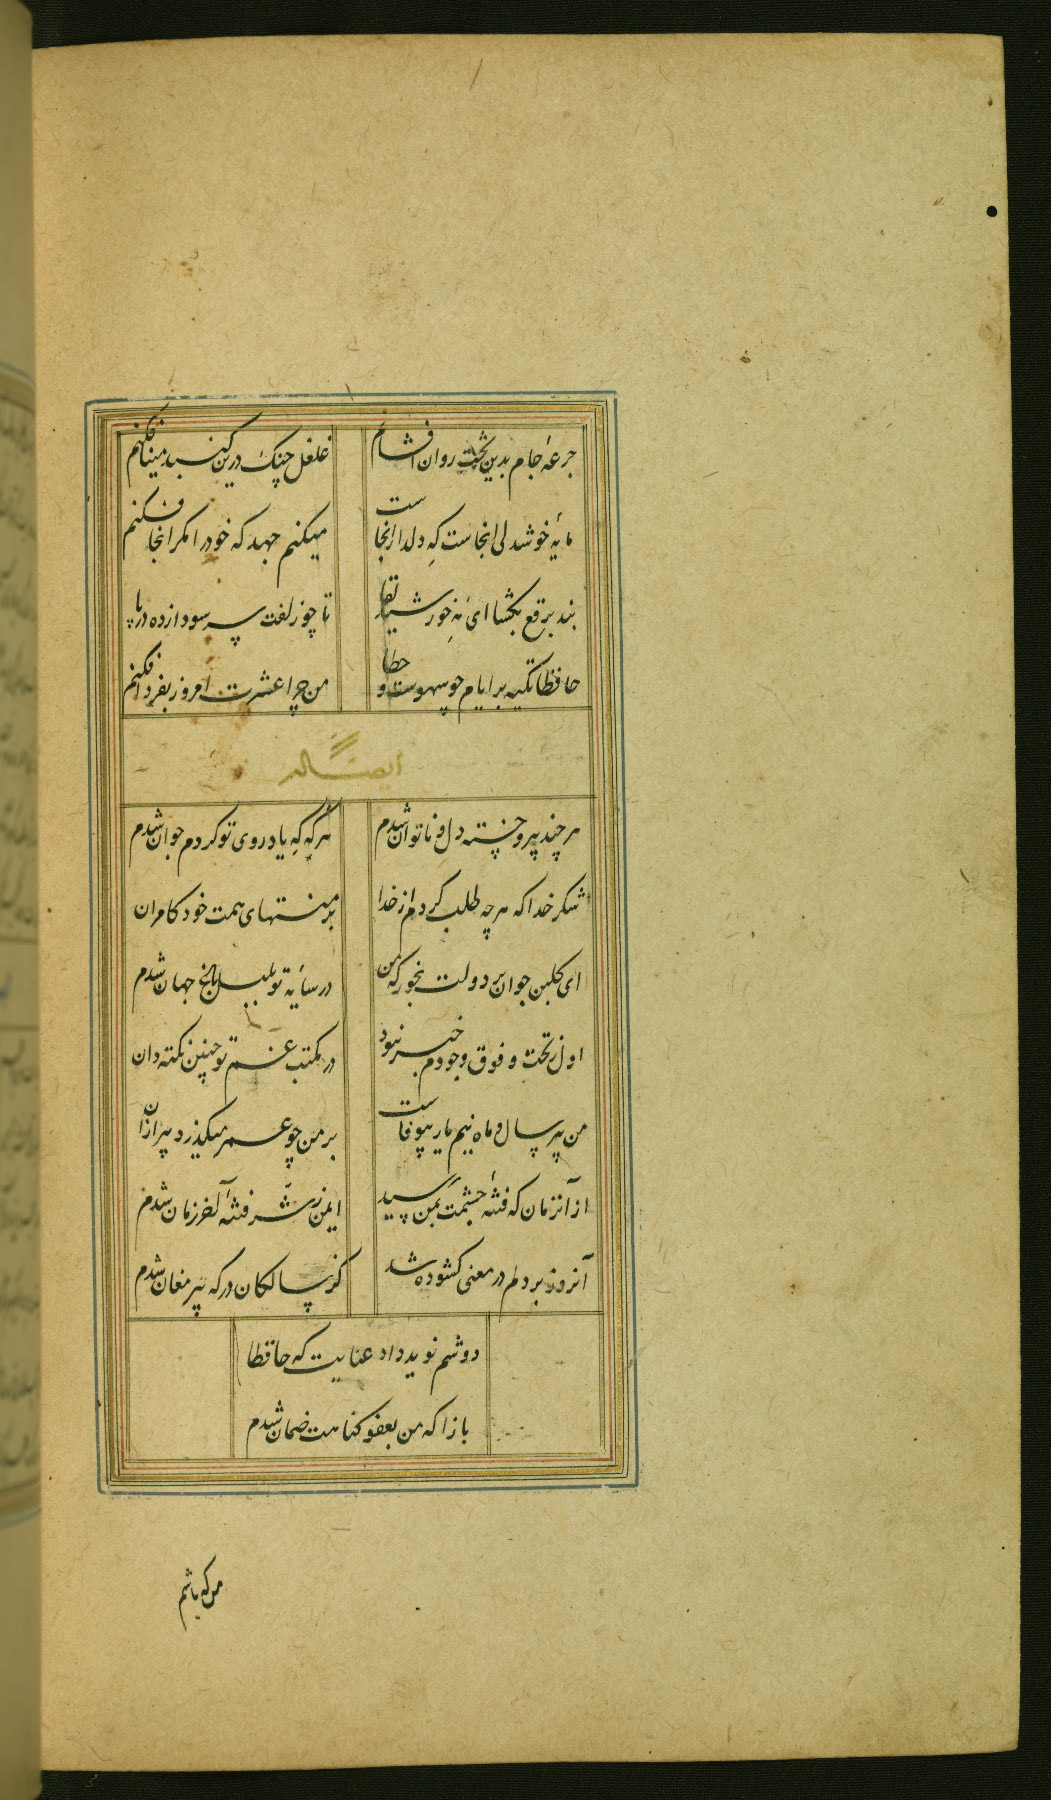 جرعهٔ جام بدین تخت روان افشانم
غلغل چنک درین کنبد مینا فکنم
مایهٔ خوشدلی انجاست که دلدار انجاست
میکنم جهد که خود را مکر انجا فکنم
بند برقع بکشا ای مه خورشید لقا
تا چو زلفت سر سودازده در پا
حافظا تکیه بر ایام چو سهوست و خطا
من چرا عشرت امروز بفردا فکنم
ایضاً له
هر چند پیر و خسته دل و ناتوان شدم
هر که که یاد روی تو کردم جوان شدم
شکر خدا که هر چه طلب کردم از خدا
بر منتهای همت خود کامران
ای کلبن جوان بر دولت بخور که من
در سایهٔ تو بلبل باغ جهان شدم
اول ز تحت و فوق وجودم خبر نبود
در مکتب غم تو چنین نکته دان
من پیر سال و ماه نیم یار بیوفاست
بر من چو عمر میکذرد پیر ازان
از آنزمان که فتنهٔ چشمت بمن رسید
ایمن ز شر فتنهٔ آخر زمان شدم
آنروز بر دلم در معنی کشوده شد
کز سالکان درکه پیر مغان شدم
دوشم نوید داد عنایت که حافظا
بازا که من بعفو کناهت ضمان شدم
من که باشم